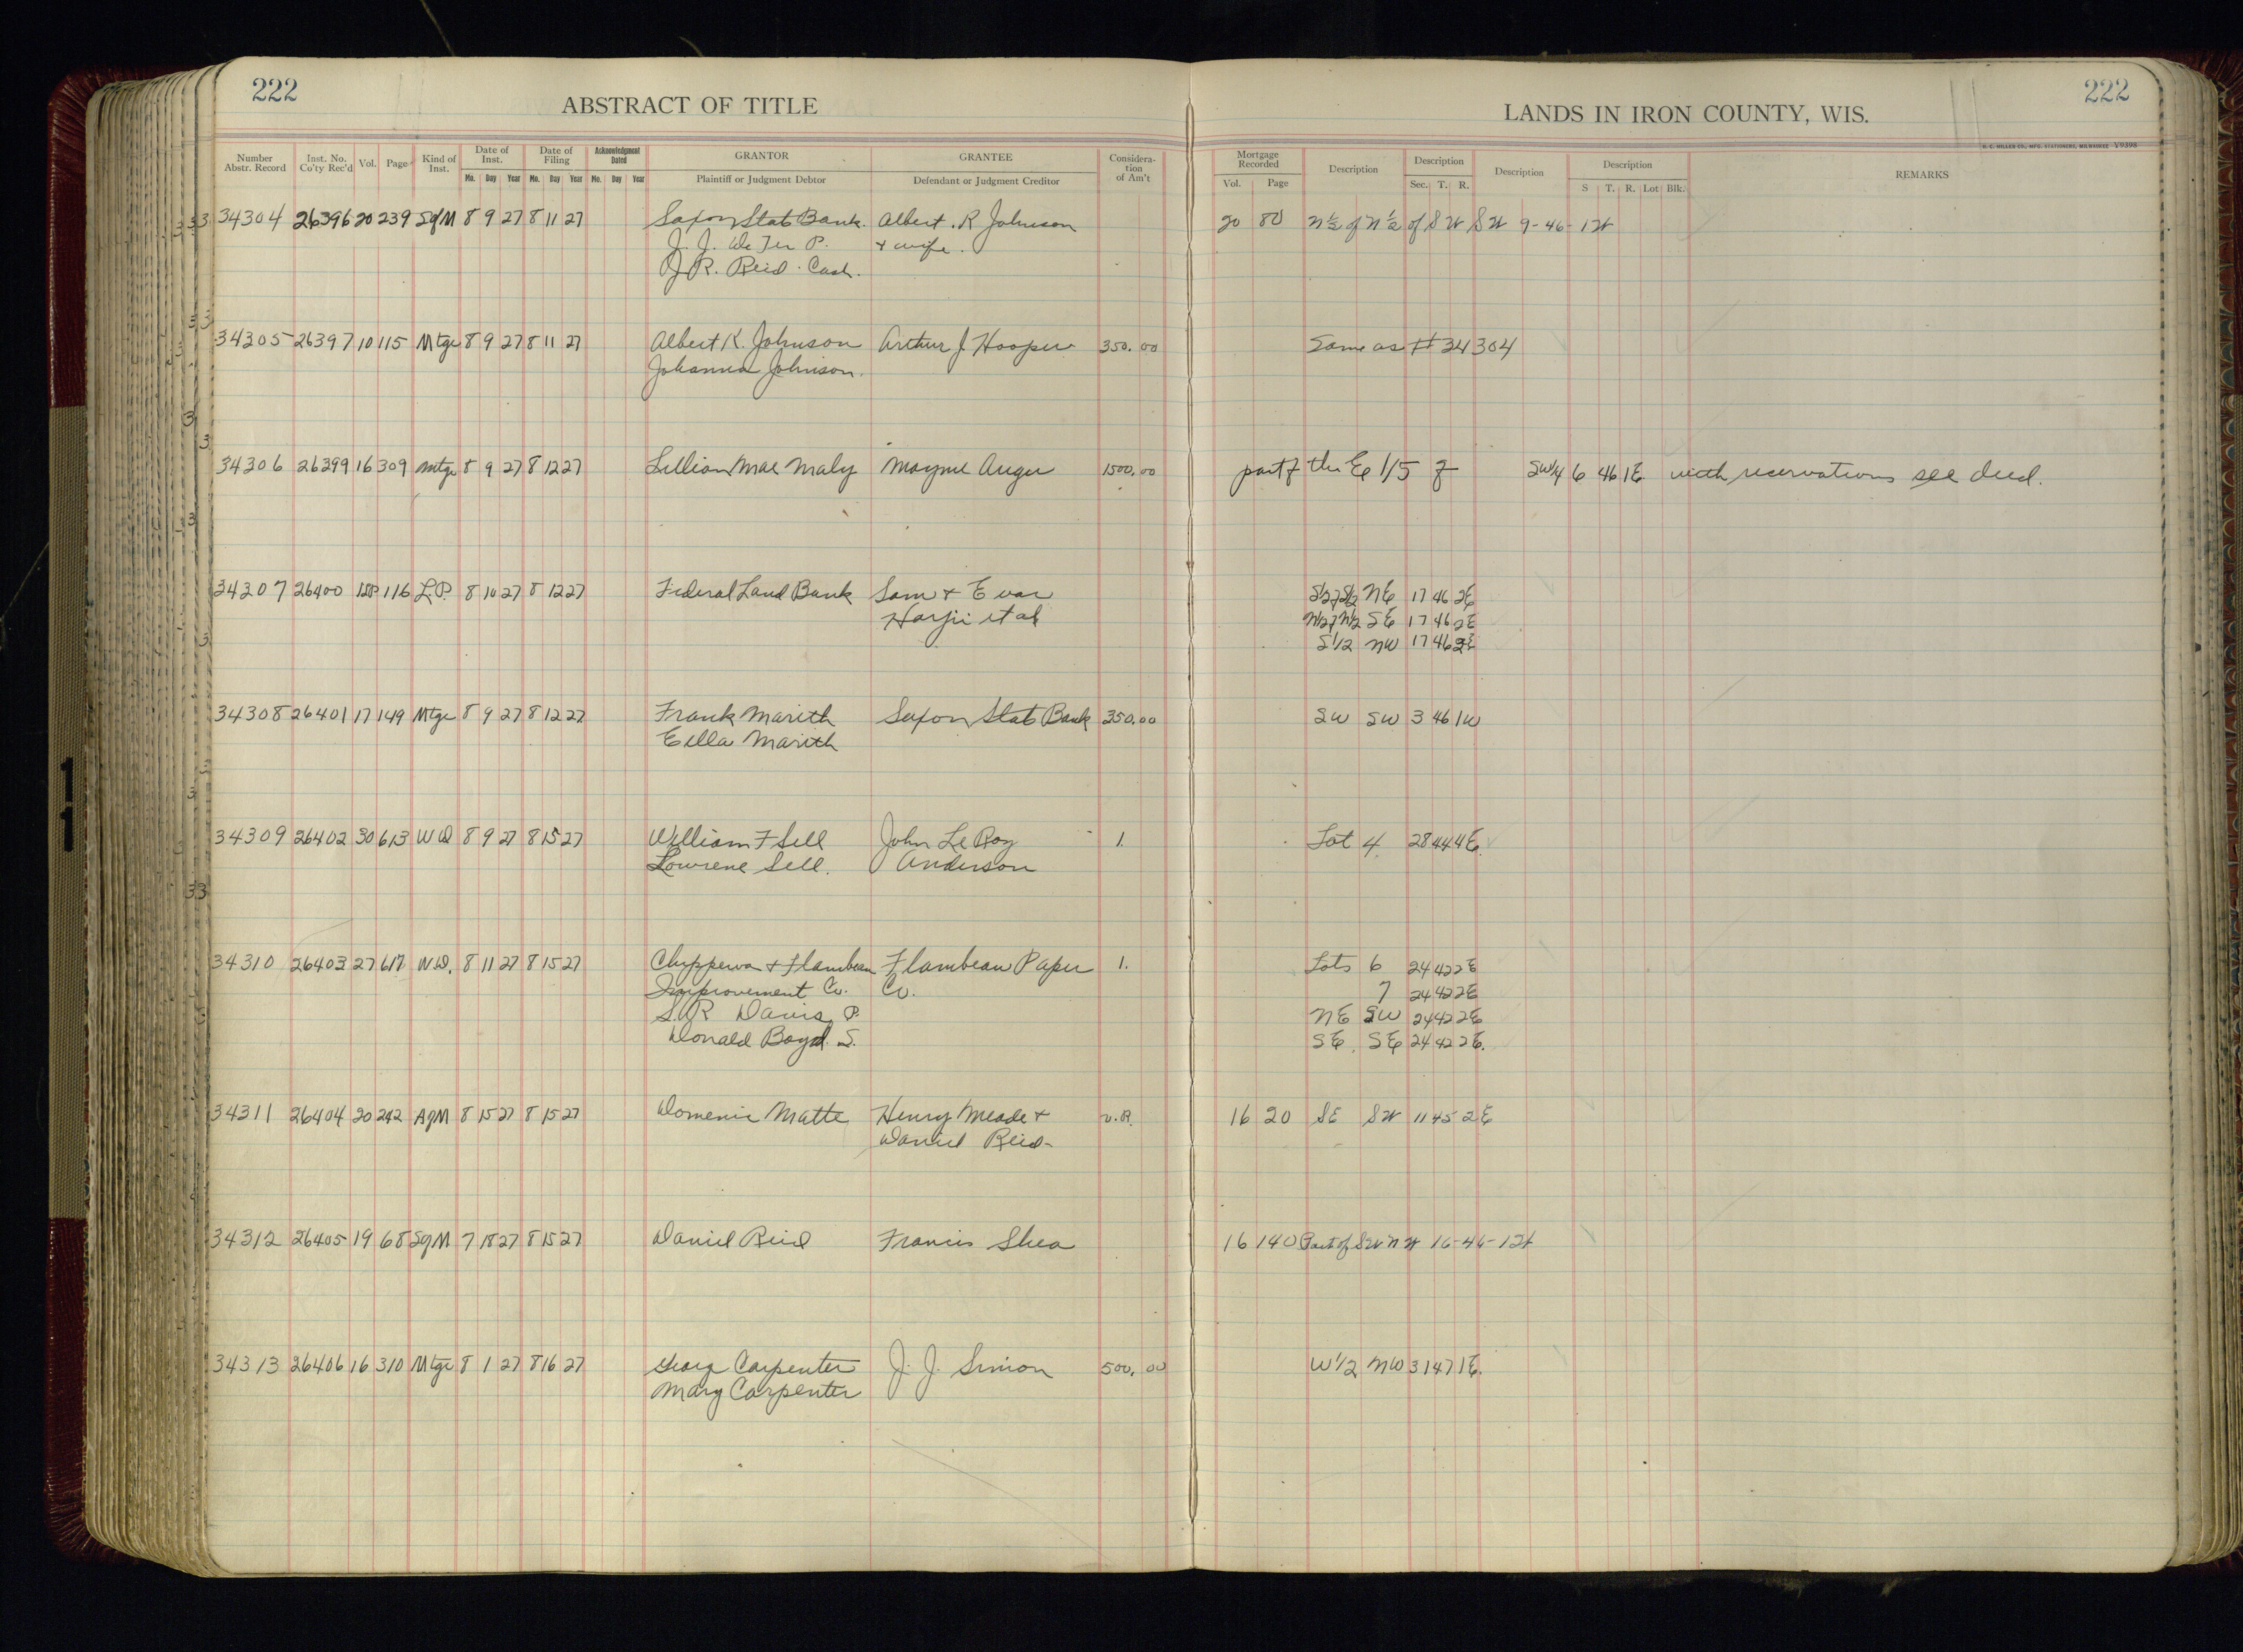 222
ABSTRACT OF TITLE
LANDS IN IRON COUNTY, WIS.
222
H. C. MILLER CO., MFG. STATIONERS, MILWAUKEE V9398
Number Abstr. Record Inst. No. Co'ty Rec'd Vol. Page Kind of Inst. Date of Inst. Mo. Day Year Date of Filing Mo. Day Year Acknowledgment Dated Mo. Day Year GRANTOR Plaintiff or Judgment Debtor GRANTEE Defendant or Judgment Creditor Consideration of Am't Mortgage Recorded Vol. Page Description Description Sec. T. R. Description Description S T. R. Lot Blk. REMARKS
34304 26396 20 239 SgM 8 9 27 8 11 27 Saxon State Bank. Albert. R Johnson 20 80 N½ of N½ of SW SW 9-46-1W
J. J. De Fer P. + wife.
J. R. Reid. Cash.
34305 26397 10 115 Mtge 8 9 27 8 11 27 Albert K. Johnson Arthur J. Hooper 350.00 Same as #34304
Johanna Johnson.
34306 26399 16 309 Mtge 8 9 27 8 12 27 Lillian Mae Maly Mayme Auger 1500.00 part of the E 1/5 of SW¼ 6 46 1E with reservations see deed.
34307 26400 116 L.P. 8 10 27 8 12 27 Federal Land Bank Sam + E var S½ of S½ NE 17 46 2E
et al N½ of N½ SE 17 46 2E
S1/2 NW 17 46 2E
34308 26401 17 149 Mtge 8 9 27 8 12 27 Frank Marith Saxon State Bank 350.00 SW SW 3 46 1W
Eella Marith
34309 26402 30 613 WD 8 9 27 8 15 27 William F Sell John Le Roy 1. Lot 4 28 44 4E.
Lowrene Sell. Anderson
34310 26403 27 617 W.D. 8 11 27 8 15 27 Chippewa + Flambeau Flambeau Paper 1. Lots 6 24 42 2E
Improvement Co. Co. 7 24 42 2E
S. R Davis P. NE SW 24 42 2E
Donald Boyd. S. SE. SE 24 42 2E.
34311 26404 20 242 AgM 8 15 27 8 15 27 Domenic Matte Henry Meade + v.R. 16 20 SE SW 11 45 2E
Daniel Reid
34312 26405 19 68 SgM 7 18 27 8 15 27 Daniel Reid Francis Shea 16 140 Part of SW NW 16-46-1W
34313 26406 16 310 Mtge 8 1 27 8 16 27 Georg Carpenter J. J. Simon 500.00 W1/2 NW 31 47 1E.
Mary Carpenter